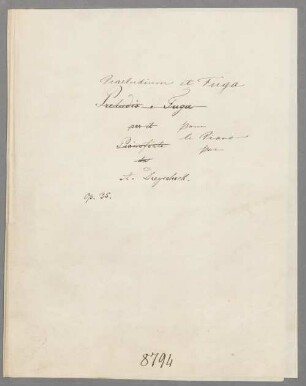 Praeludium et Fuga
Preludio e Fuga
per il pour
Pianoforte le Piano
par
A.
Op. 35.
8794